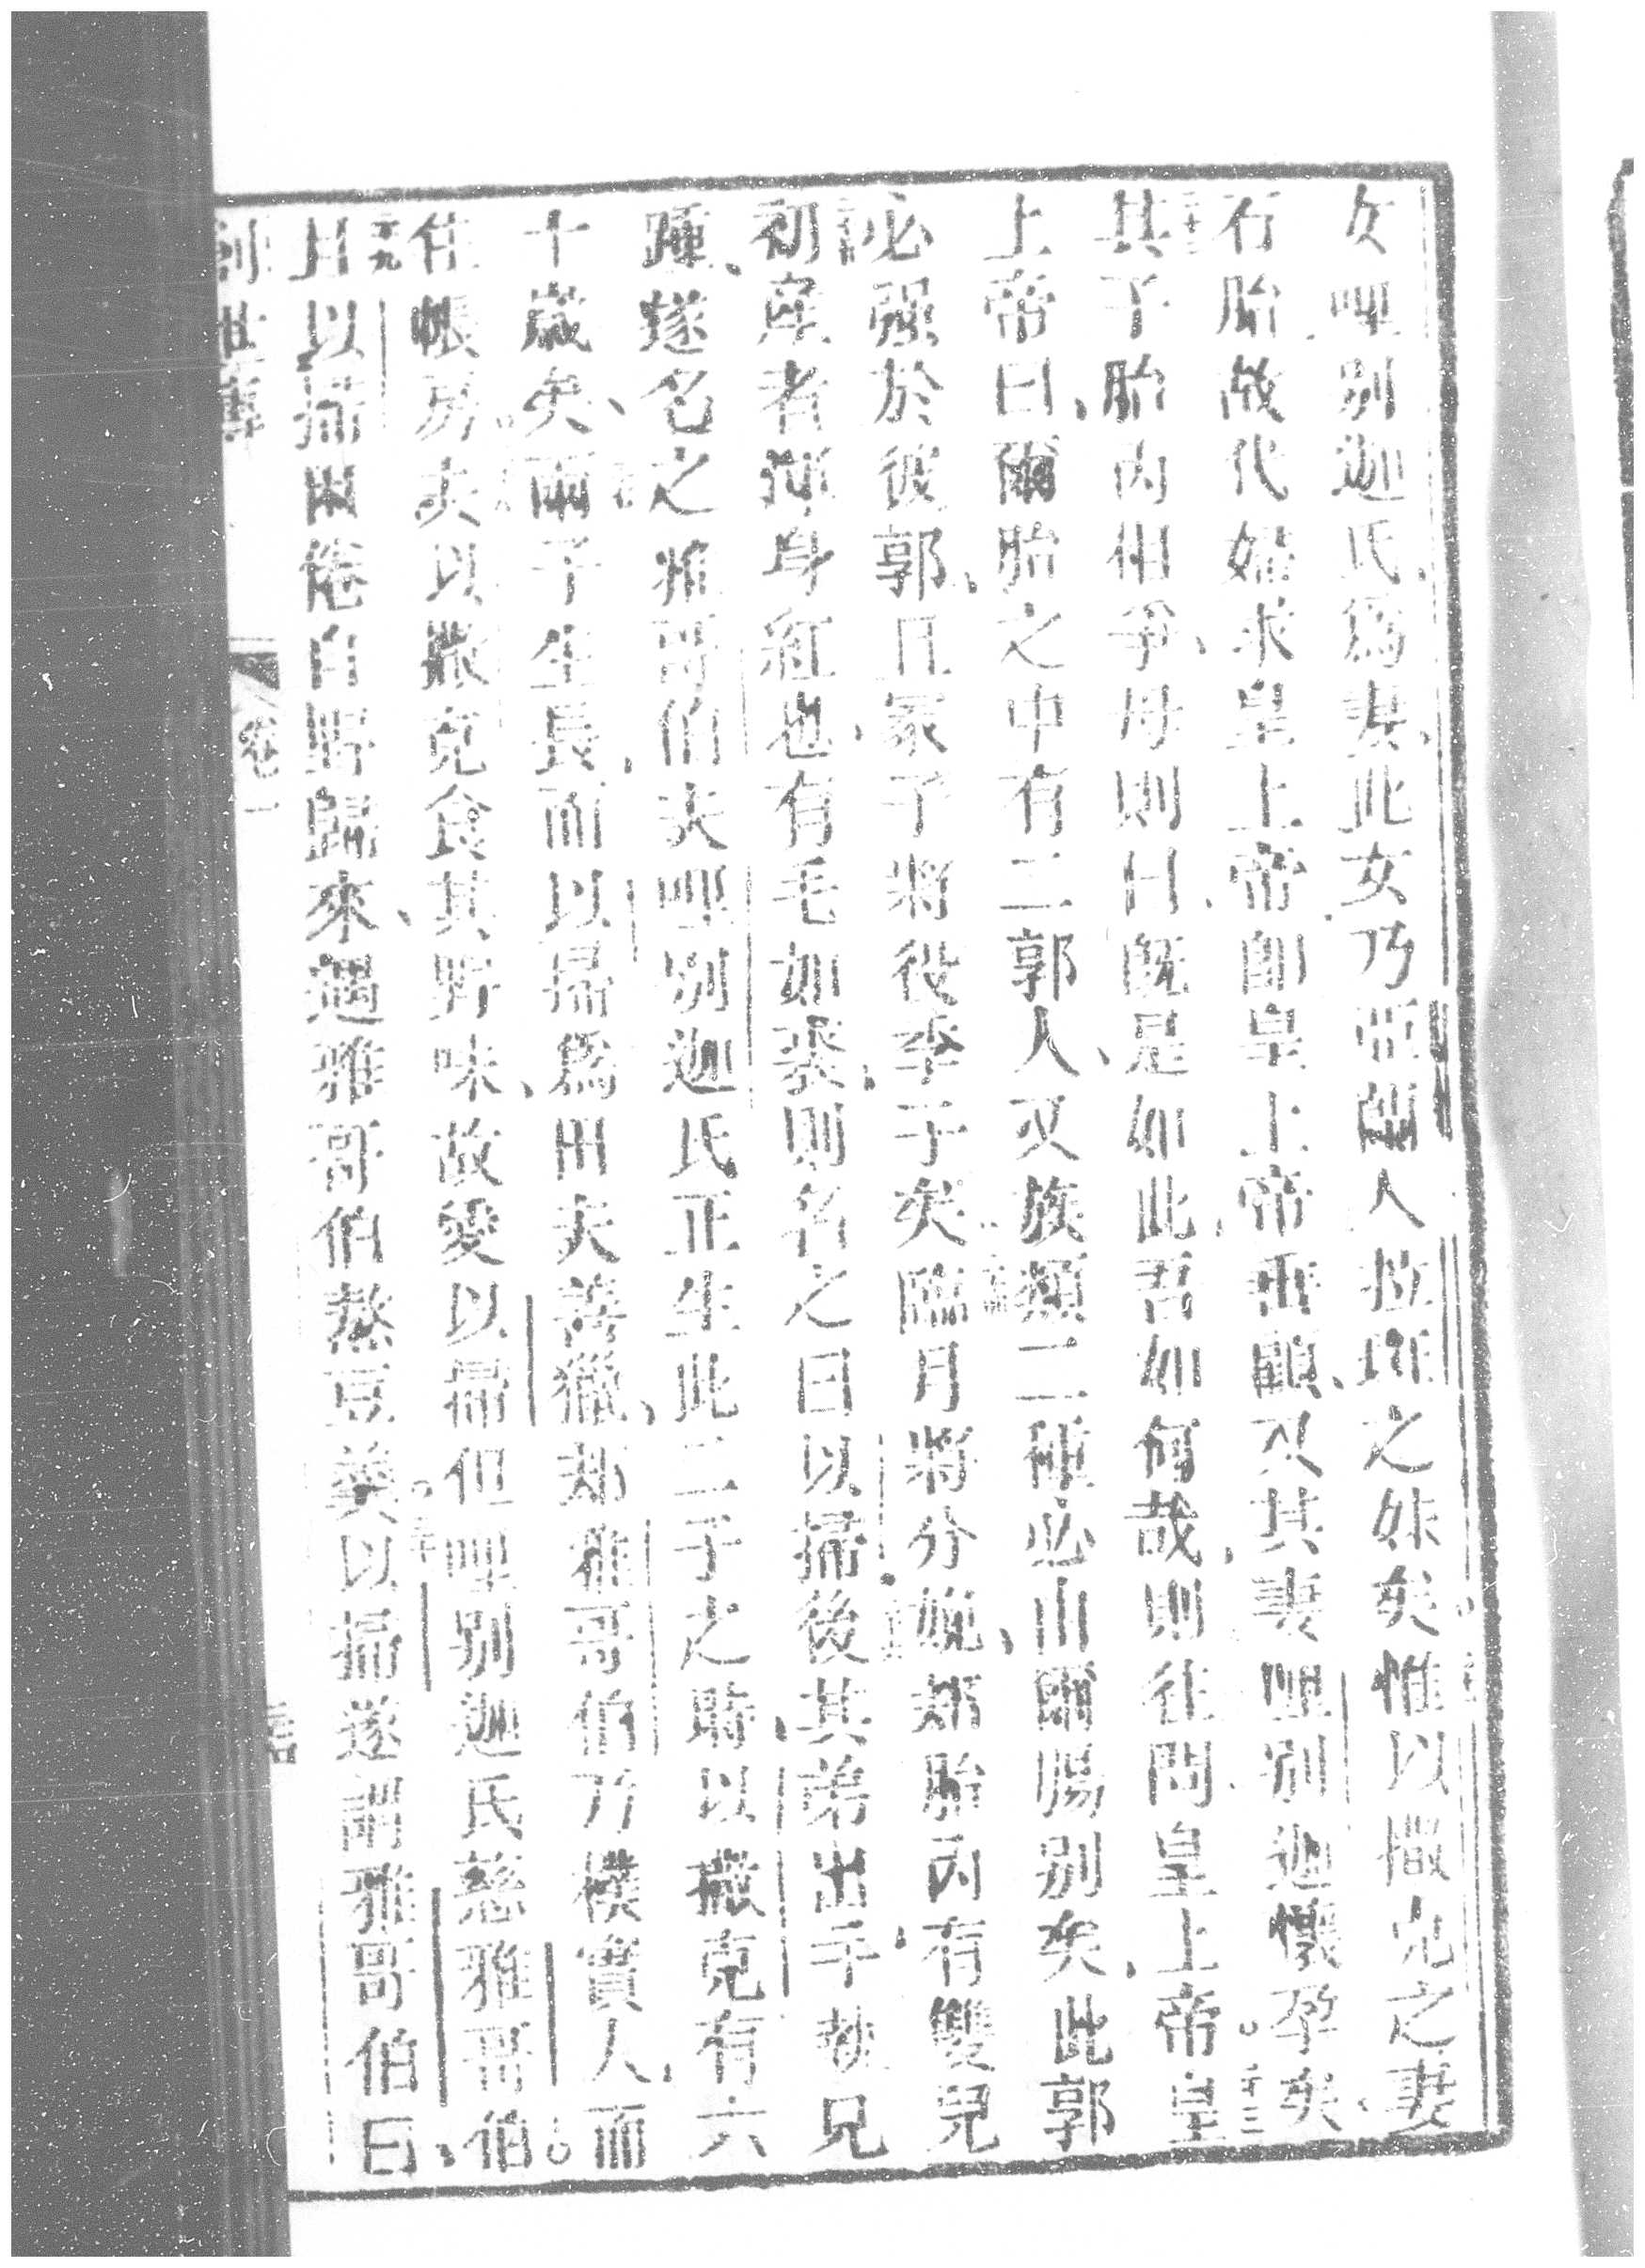 女哩別迦氏爲妻、此女乃亞蘭人拉班之妹矣惟以撒克之妻
石胎故代婦求皇上帝卽皇上帝垂顧、及其妻哩別迦懷孕矣
其子胎內相爭、母則曰旣是如此、吾如何哉、則往問皇上帝皇
上帝曰、爾胎之中有二郭人、又族類二種必由爾腸別矣、此郭
必强於彼郭、且冢子將役季子矣臨月將分娩、郍胎內有雙兒
初產者渾身紅也、有毛如裘、則名之曰以掃後其弟出手執兄
踵、遂名之雅哥伯夫哩別迦氏正生此二子之時以撒克有六
十歲矣、爾子生長、而以掃爲田夫善獵、郍雅哥伯乃樸實人、而
住帳房夫以撒克食其野味、故愛以掃但哩別迦氏慈雅哥伯、
且以掃困倦自野歸來、遇雅哥伯熬豆羹以掃遂謂雅哥伯曰
卷一